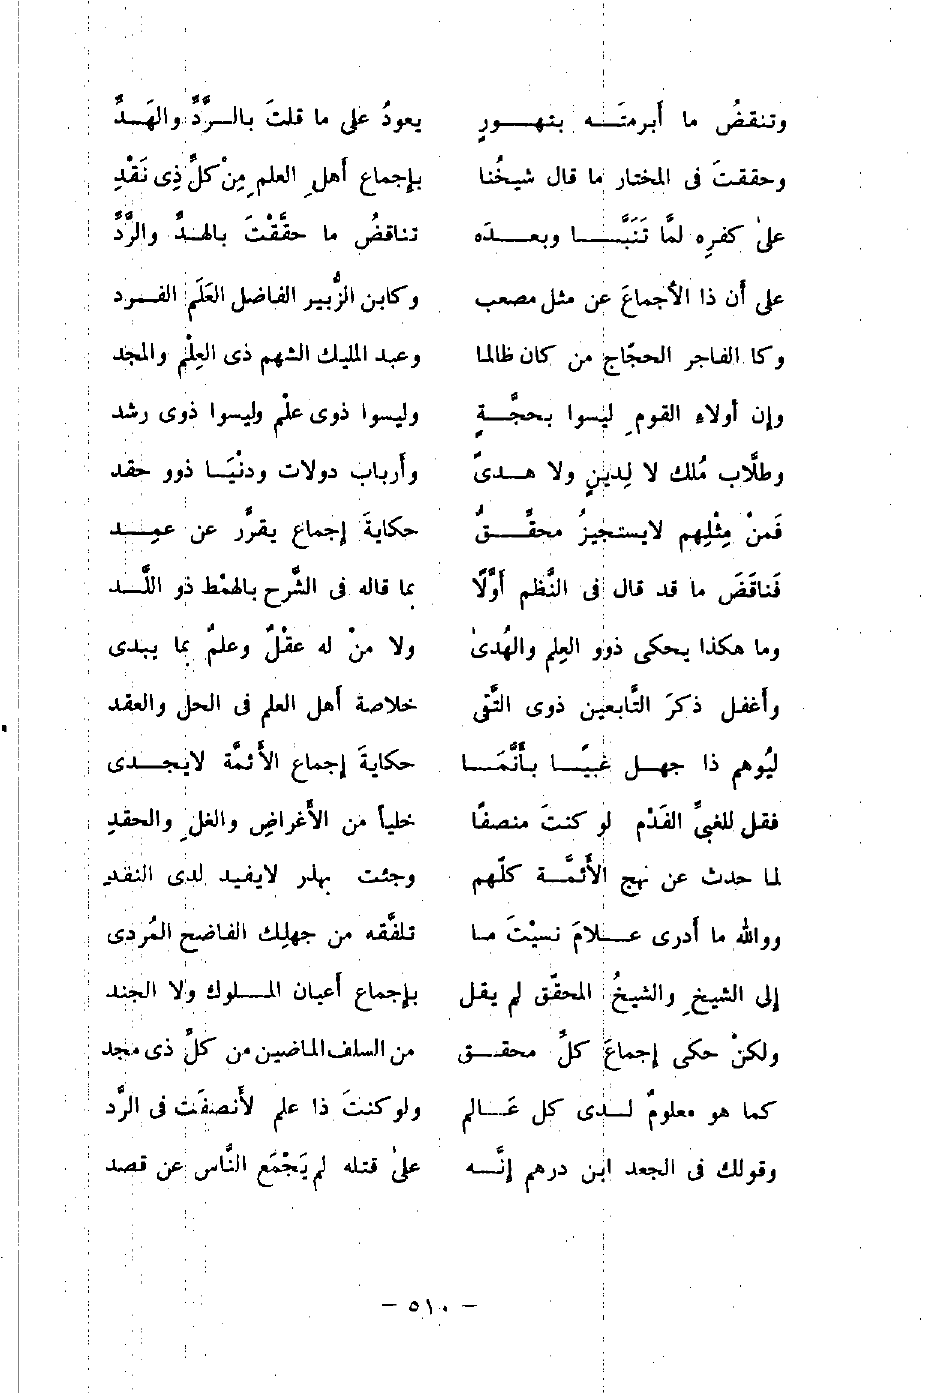 وتنقضُ ما أبرمتَه بتهورٍ يعودُ على ما قلتَ بالرَّدِّ والهَدِّ
وحققتَ فى المختار ما قال شيخُنا بإجماع أهلِ العلمِ مِنْ كلِّ ذِى نَقْدِ
علىٰ كفرِه لمَّا تَنَبَّا وبعدَه تناقضُ ما حقَّقْتَ بالهدِّ والرَّدِّ
على أن ذا الأجماعَ عن مثل مصعب وكابن الزُّبير الفاضل العَلَم الفرد
وكا الفاجر الحجّاج من كان ظالما وعبد المليك الشهم ذى العِلْم والمجد
وإن أولاء القومِ ليسوا بحجَّةٍ وليسوا ذوى علْم وليسوا ذوى رشد
وطلَّاب مُلك لا لِدينٍ ولا هدىً وأرباب دولات ودنْيَا ذوو حقد
فَمنْ مِثْلِهم لايستجيزُ محقِّقٌ حكايةَ إجماع يقرَّر عن عمِد
فَناقَضَ ما قد قال فى النَّظم أوَّلًا بما قاله فى الشَّرح بالهمْط ذو اللَّد
وما هكذا يحكى ذوو العِلم والهُدىٰ ولا منْ له عقْلٌ وعلمٌ بما يبدى
وأغفل ذكرَ التَّابعين ذوى التَّقى خلاصة أهل العلم فى الحل والعقد
ليُوهم ذا جهل غبيًا بأنَّمَا حكايةَ إجماع الأئمَّة لايجدى
فقل للغبىِّ الفَدْم لو كنتَ منصفًا خلياً من الأغراضِ والغلِ والحقدِ
لما حدث عن نهج الأئمَّة كلّهم وجئت بهذر لايفيد لدى النقدِ
ووالله ما أدرى علامَ نسيْتَ ما تلفَّقه من جهلِك الفاضح المُردى
إلى الشيخِ والشيخُ المحقّق لم يقل بإجماع أعيان الملوك ولا الجند
ولكنْ حكى إجماعَ كلِّ محقق من السلف الماضين من كلِّ ذى مجد
كما هو معلومٌ لدى كل عَالم ولو كنتَ ذا علم لأنصفَت فى الرَّد
وقولك فى الجعد ابن درهم إنَّه علىٰ قتله لم يَجْمَع النَّاس عن قصد
– ٥١٠ –